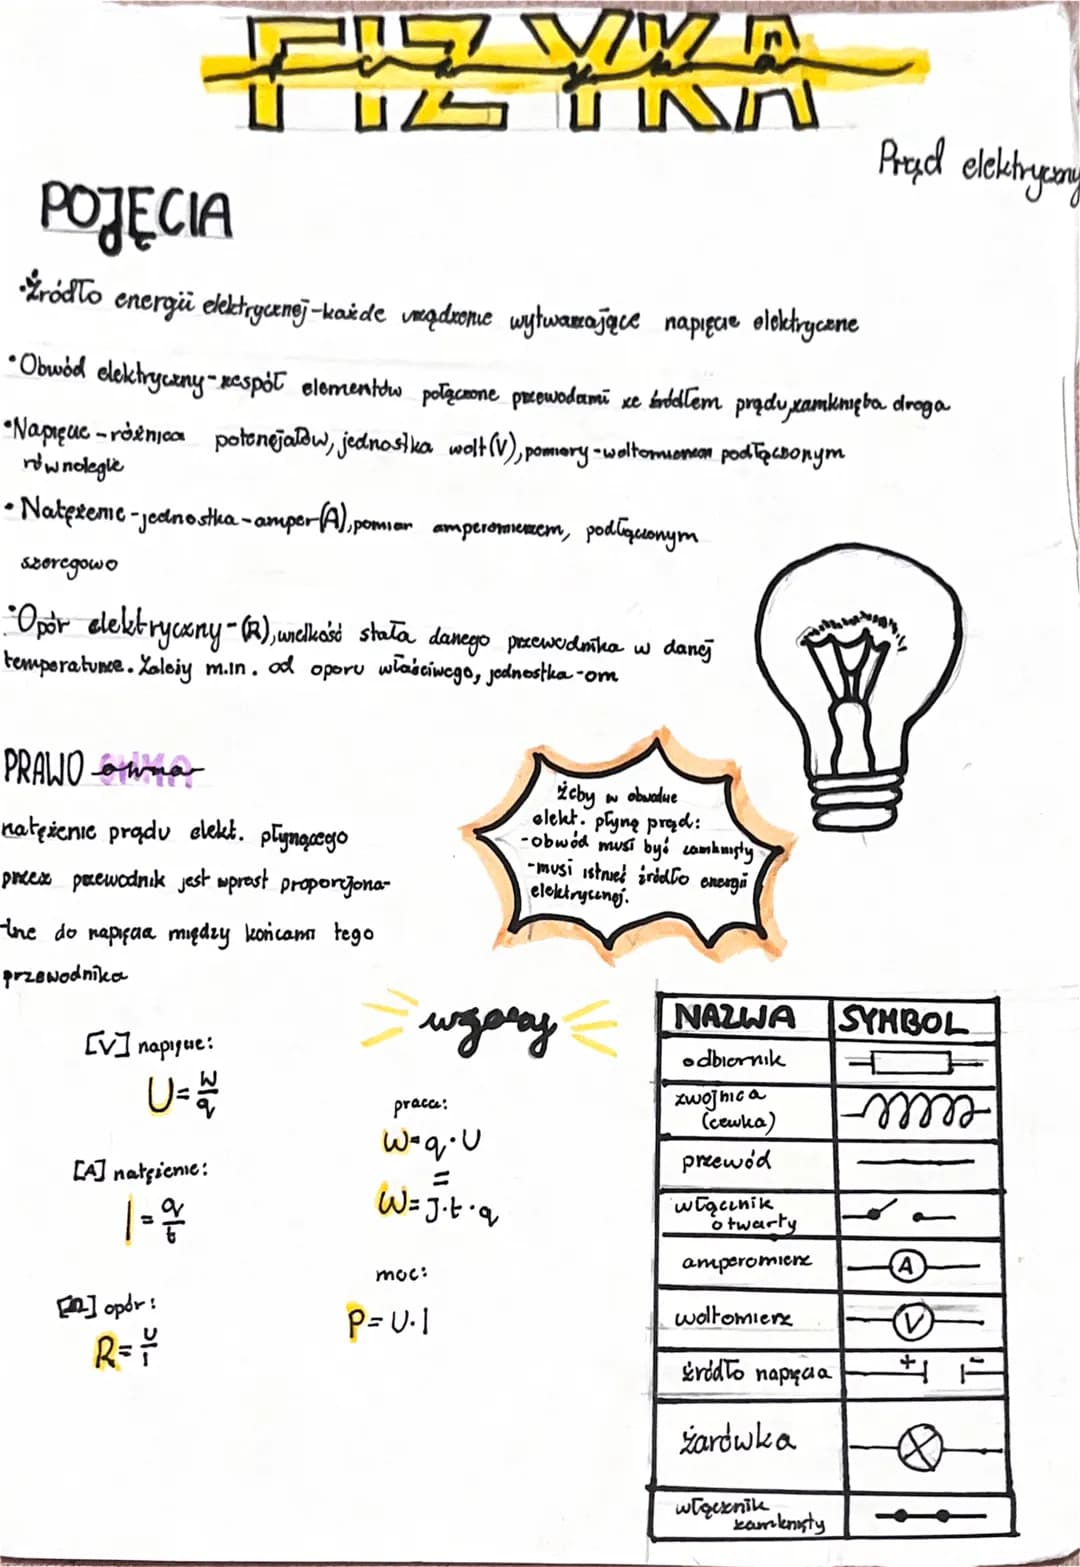 FIZYKA
fizyka
Prąd elektryczny
POJĘCIA
•Źródło energii elektrycznej-każde urządzenie wytwarzające napięcie elektryczne
•Obwód elektryczny-zespół elementów połączone przewodami ze źródłem prądu,zamknięta droga
•Napięcie-różnica potencjałów, jednostka wolt(V), pomiary-woltomierzem podłączonym
równolegle
•Natężenie-jednostka-amper(A), pomiar amperomierzem, podłączonym
szeregowo
•Opór elektryczny-(R), wielkość stała danego przewodnika w danej
temperaturze. Zależy m.in. od oporu właściwego, jednostka-om
PRAWO OHMA
ohma
natężenie prądu elekt. płynącego
przez przewodnik jest wprost proporcjona-
lne do napięcia między końcami tego
przewodnika
żeby w obwodzie
elekt. płyną prąd:
-obwód musi być zamknięty
-musi istnieć źródło energii
elektrycznej.
wzory
[V] napięcie:
U=W/q
[A] natężenie:
I=q/t
[Ω] opór:
R=U/I
praca:
W=q·U
=
W=J·t·q
moc:
P=U·I
NAZWA SYMBOL
odbiornik
zwojnica
(cewka)
przewód
włącznik
otwarty
amperomierz A
woltomierz V
źródło napięcia + -
żarówka
włącznik
zamknięty